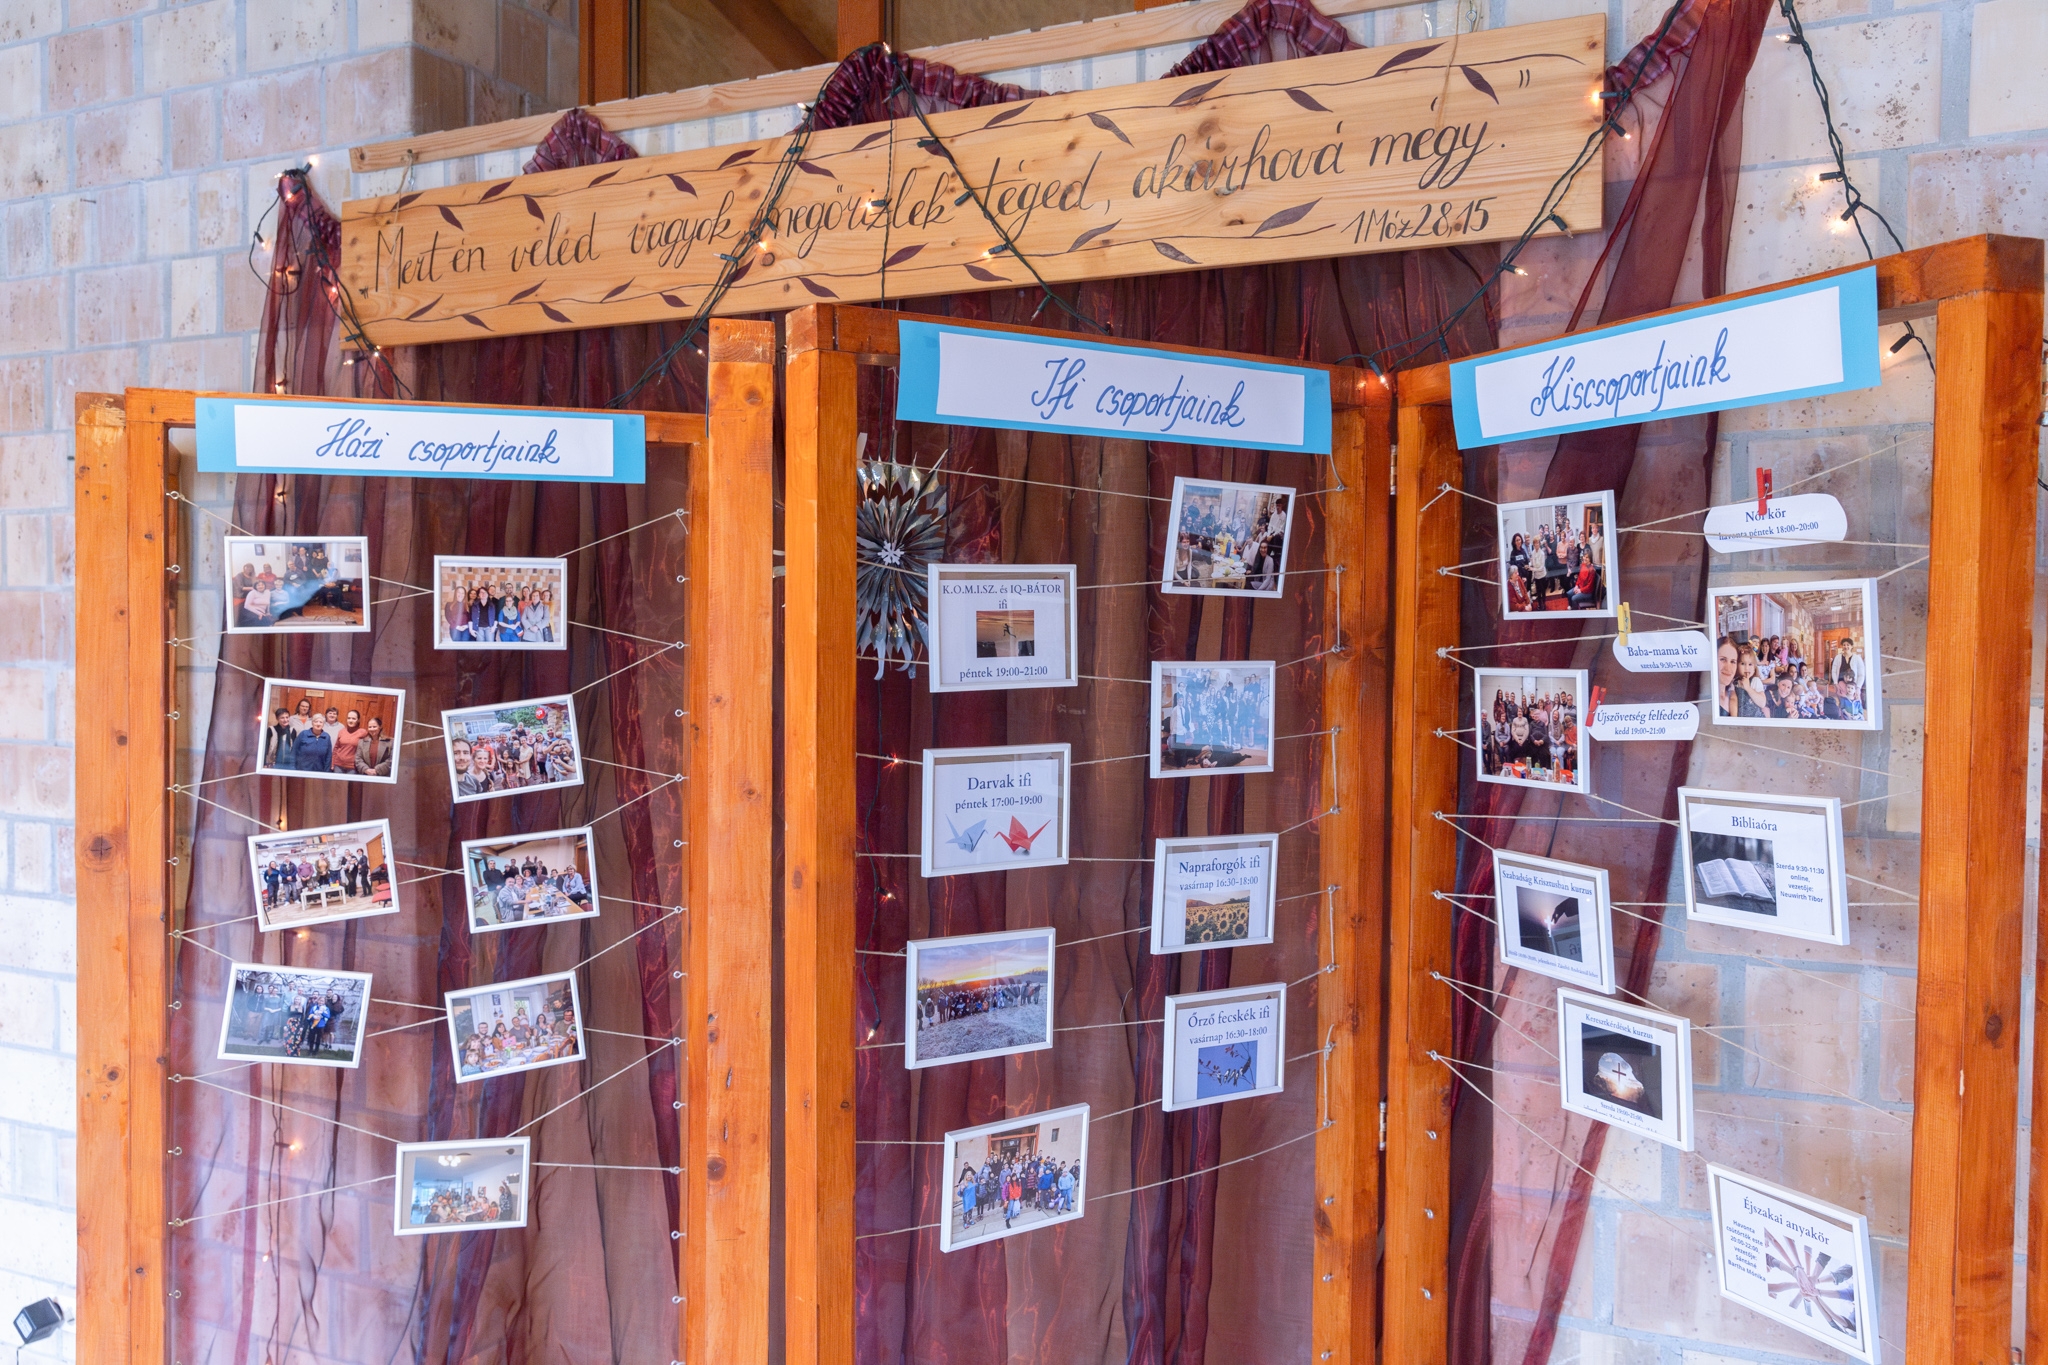 „Mert én veled vagyok, megőrizlek téged, akárhová mégy."
1Móz28,15
Házi csoportjaink
Ifi csoportjaink
K.O.M.I.SZ. és IQ-BÁTOR
ifi
péntek 19:00-21:00
Darvak ifi
péntek 17:00-19:00
Napraforgók ifi
vasárnap 16:30-18:00
Őrző fecskék ifi
vasárnap 16:30-18:00
Kiscsoportjaink
Női kör
havonta péntek 18:00-20:00
Baba-mama kör
szerda 9:30-11:30
Újszövetség felfedező
kedd 19:00-21:00
Bibliaóra
Szerda 9:30-11:30
online,
vezetője:
Neuwirth Tibor
Szabadság Krisztusban kurzus
Keresztkérdések kurzus
Szerda 19:00-21:00,
Éjszakai anyakör
Havonta
csütörtök este
20:00-22:00,
vezetője:
Sántáné
Bartha Mónika